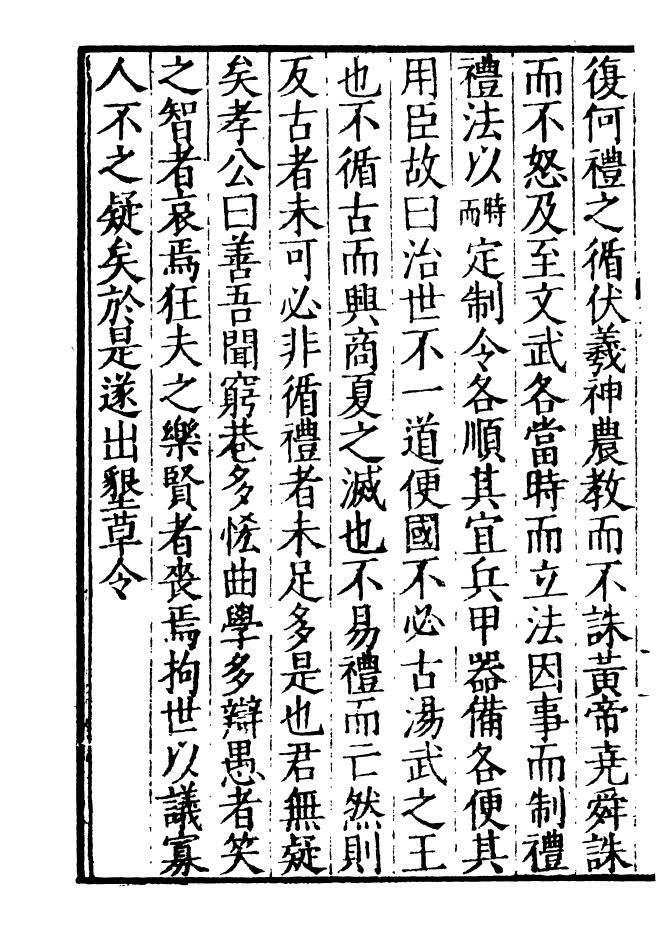 復何禮之循伏羲神農教而不誅黃帝堯舜誅
而不怒及至文武各當時而立法因事而制禮
禮法以時而定制令各順其宜兵甲器備各便其
用臣故曰治世不一道便國不必古湯武之王
也不循古而興商夏之滅也不易禮而亡然則
反古者未可必非循禮者未足多是也君無疑
矣孝公曰善吾聞窮巷多恡曲學多辯愚者笑
之智者哀焉狂夫之樂賢者喪焉拘世以議寡
人不之疑矣於是遂出墾草令